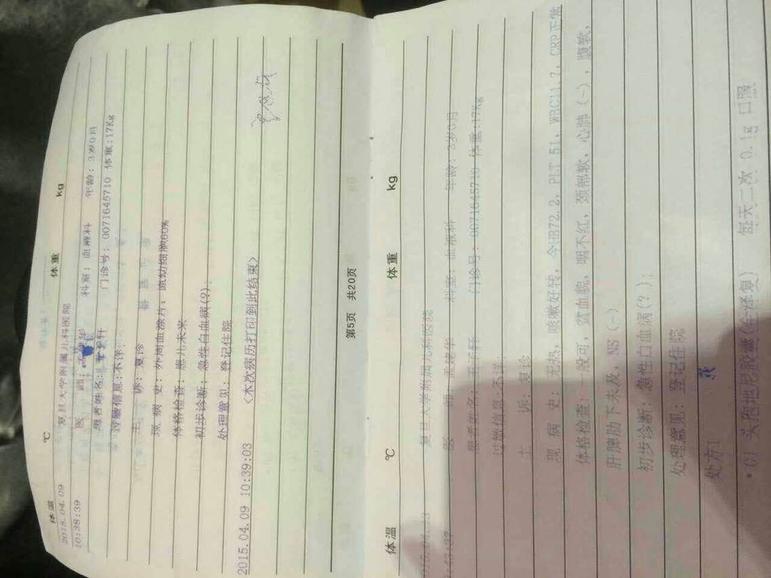 体温 ℃ 体重 kg
2015.04.09 复旦大学附属儿科医院
10:38:39 科室: 血液科 年龄: 3岁0月
患者姓名: 门诊号: 0071645710 体重:17Kg
过敏信息:不详
主 诉: 复诊
现 病 史: 外周血涂片: 血幼细胞60%
体格检查: 患儿未来
初步诊断: 急性白血病(?);
处理意见: 登记住院
2015.04.09 10:39:03 <本次病历打印到此结束>
第5页 共20页
体温 ℃ 体重 kg
复旦大学附属儿科医院
科室: 血液科 年龄: 3岁0月
患者姓名: 门诊号: 0071645710 体重:17Kg
过敏信息:不详
主 诉: 复诊
现 病 史: 无热, 咳嗽好转, 今HB72.2, PLT 51, WBC11.7, CRP正常
体格检查: 一般可, 贫血貌, 咽不红, 颈部软, 心肺 (-) , 腹软,
肝脾肋下未及, NS (-)
初步诊断: 急性白血病(?);
处理意见: 登记住院
处方:
每天二次 0.1g 口服